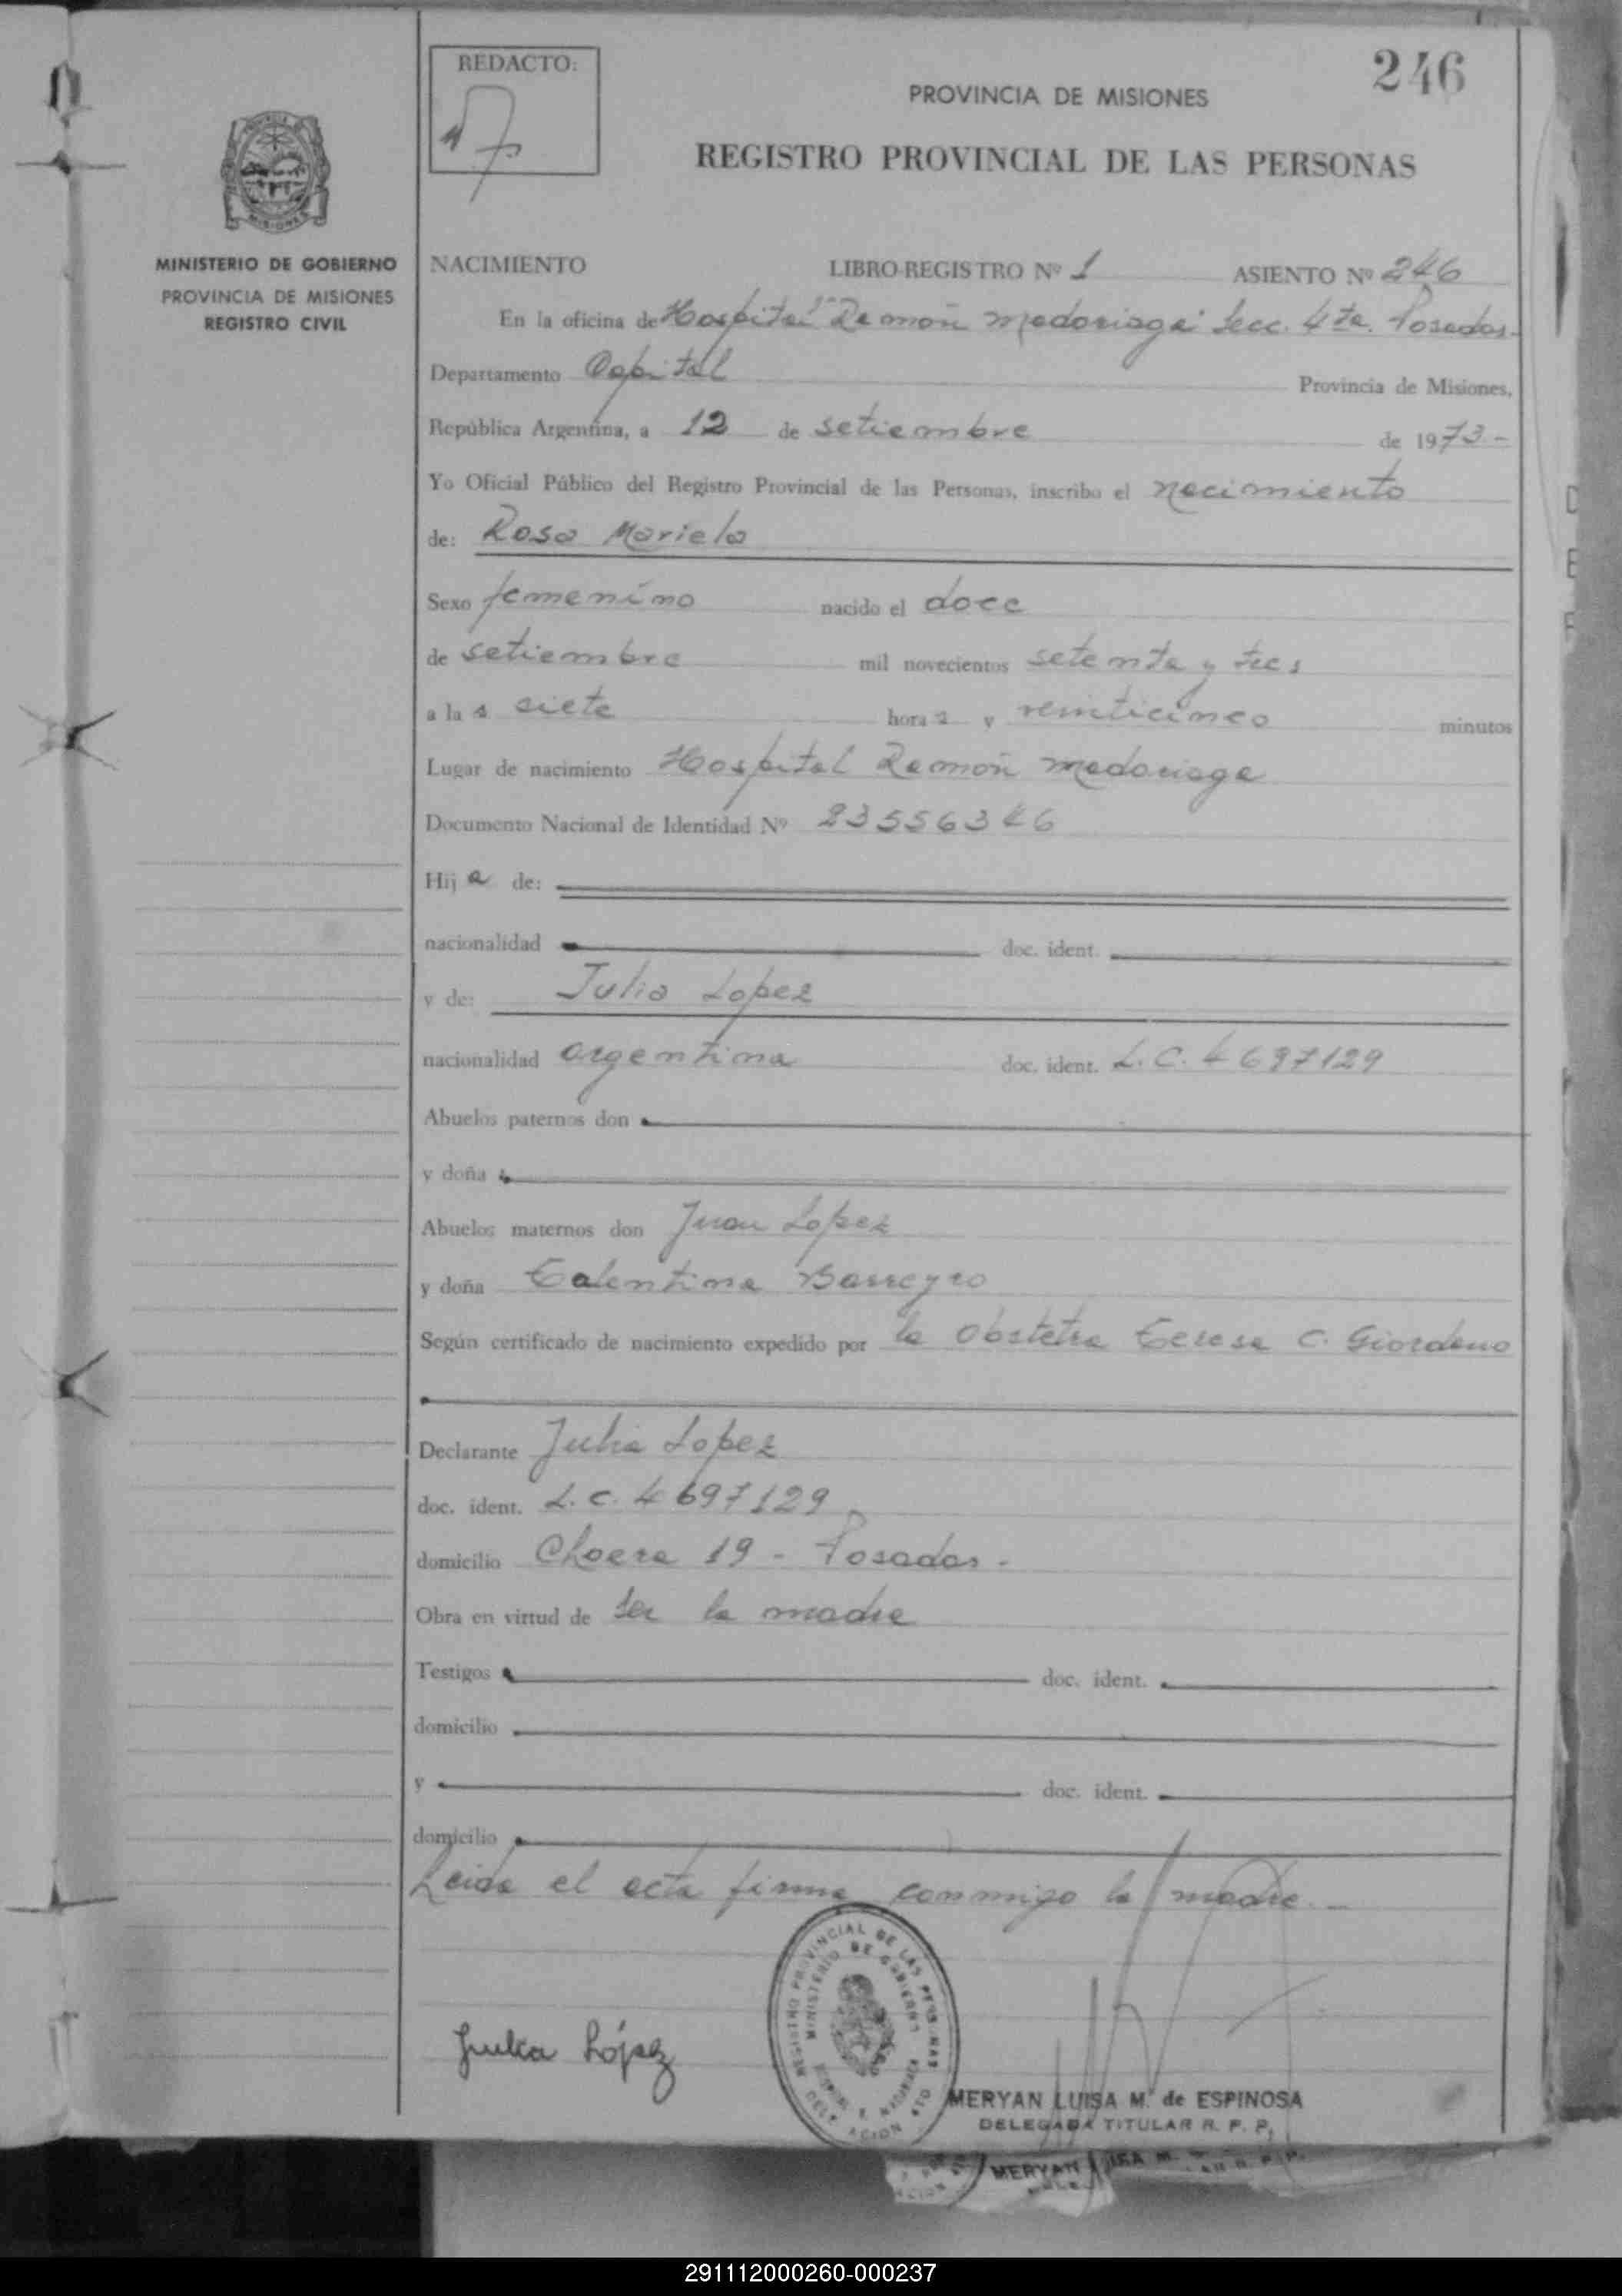 246
REDACTO:
PROVINCIA DE MISIONES
REGISTRO PROVINCIAL DE LAS PERSONAS
MINISTERIO DE GOBIERNO
PROVINCIA DE MISIONES
REGISTRO CIVIL
NACIMIENTO LIBRO-REGISTRO Nº 1 ASIENTO Nº 246
En la oficina de Hospital "Ramón Madariaga" Secc. 4ta. Posadas-
Departamento Capital Provincia de Misiones,
República Argentina, a 12 de setiembre de 1973-
Yo Oficial Público del Registro Provincial de las Personas, inscribo el nacimiento
de: Rosa Mariela
Sexo femenino nacido el doce
de setiembre mil novecientos setenta y tres
a las siete horas y veinticinco minutos
Lugar de nacimiento Hospital Ramón Madariaga
Documento Nacional de Identidad Nº 23556346
Hija de:
nacionalidad doc. ident.
y de: Julia Lopez
nacionalidad argentina doc. ident. L.C. 4697129
Abuelos paternos don
y doña
Abuelos maternos don Juan Lopez
y doña Barreyro
Según certificado de nacimiento expedido por la Obstetra Teresa C. Giordano
Declarante Julia Lopez
doc. ident. L.C. 4697129
domicilio 19 - Posadas-
Obra en virtud de ser la madre
Testigos doc. ident.
domicilio
y doc. ident.
domicilio
Leida el acta firma conmigo la madre.-
REGISTRO PROVINCIAL DE LAS PERSONAS
MINISTERIO DE GOBIERNO
Julia López
MERYAN LUISA M. de ESPINOSA
DELEGADA TITULAR R. P. P.
MERYAN
291112000260-000237